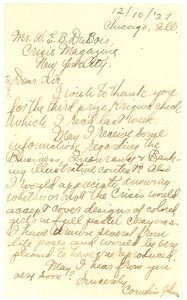 12/10/'27
Chicago, Ill.
Mr. W.E.B. DuBois,
Crisis Magazine
New York City.
Dear Sir,
I wish to thank you
for the third prize
which I rec'd last week.
May I receive some
information regarding the
Business, Insurance & Bank-
ing illustrative contest? Also
I would appreciate knowing
whether or not The Crisis would
accept cover designs of colored
girls in full pastel crayons.
I have drawn several from
life poses and would be very
pleased to have one reproduced.
May I hear from you
very soon?
Sincerely
Cornelius Johnson